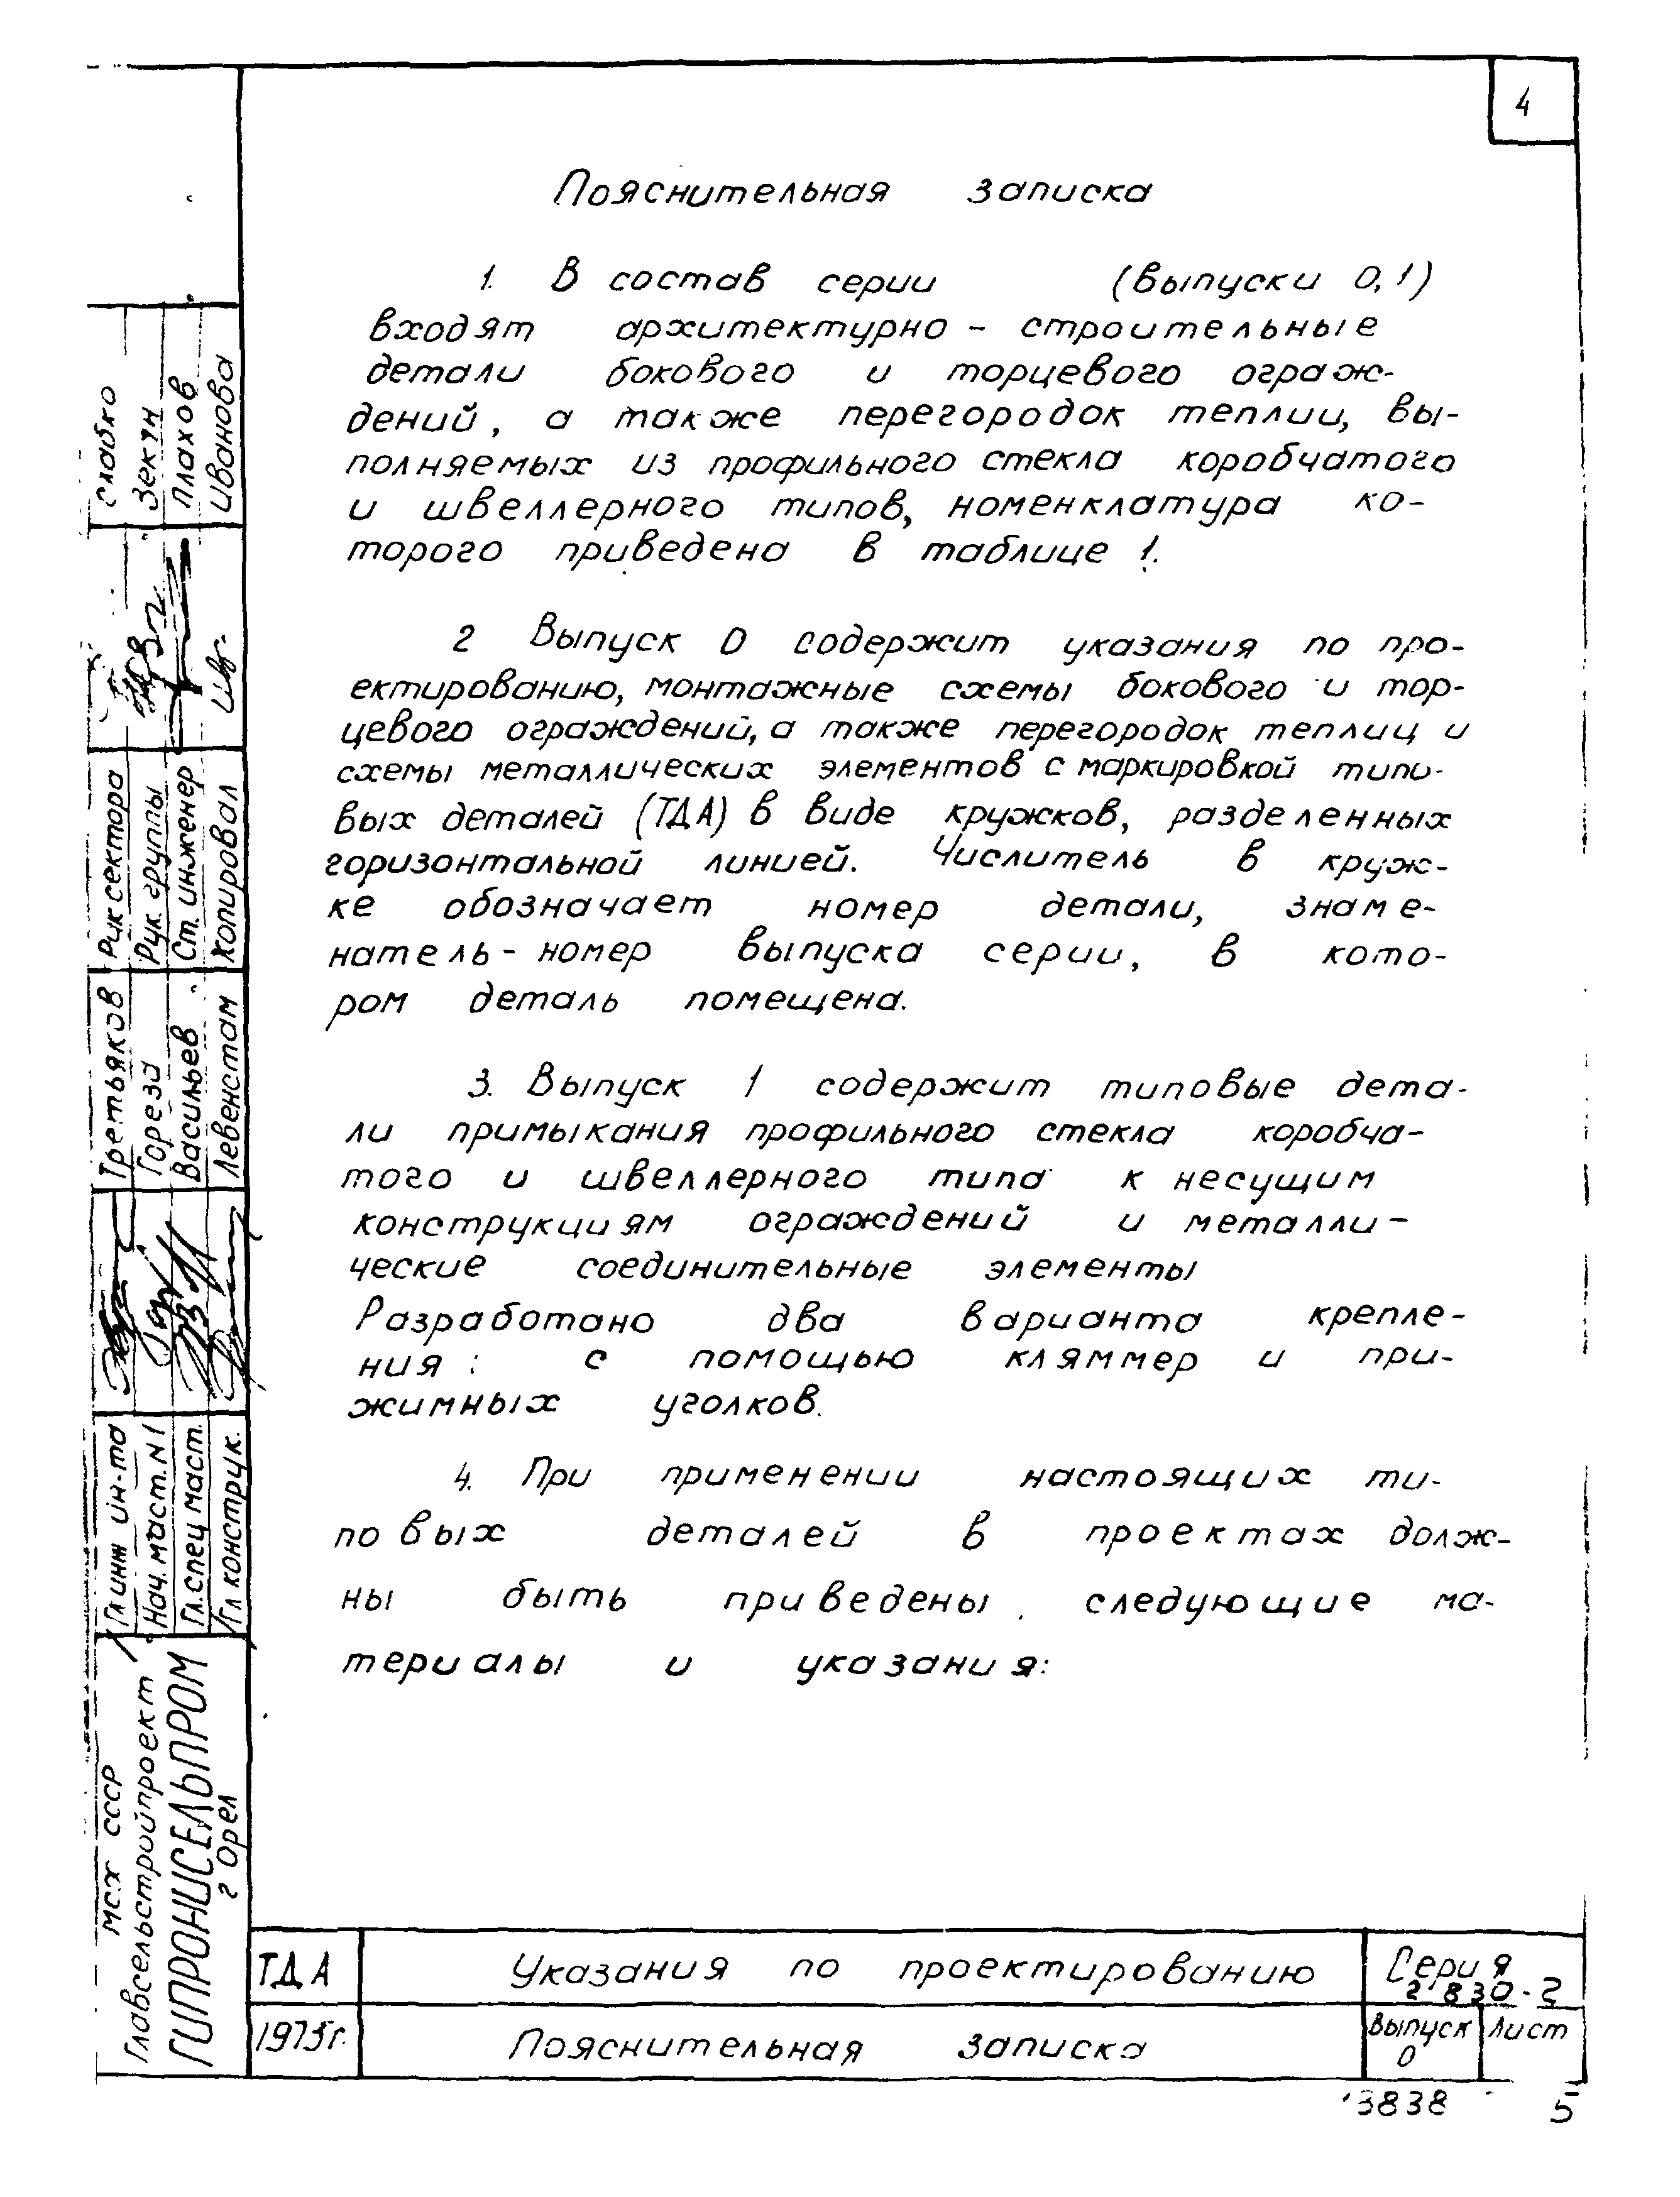 4
Пояснительная записка
1. В состав серии (выпуски 0,1)
входят архитектурно - строительные
детали бокового и торцевого ограж-
дений, а также перегородок теплиц, вы-
полняемых из профильного стекла коробчатого
и швеллерного типов, номенклатура ко-
торого приведена в таблице 1.
2 Выпуск 0 содержит указания по про-
ектированию, монтажные схемы бокового и тор-
цевого ограждений, а также перегородок теплиц и
схемы металлических элементов с маркировкой типо-
вых деталей (ТДА) в виде кружков, разделенных
горизонтальной линией. Числитель в круж-
ке обозначает номер детали, знаме-
натель - номер выпуска серии, в кото-
ром деталь помещена.
3. Выпуск 1 содержит типовые дета-
ли примыкания профильного стекла коробча-
того и швеллерного типа к несущим
конструкциям ограждений и металли-
ческие соединительные элементы
Разработано два варианта крепле-
ния: с помощью кляммер и при-
жимных уголков.
4. При применении настоящих ти-
повых деталей в проектах долж-
ны быть приведены следующие ма-
териалы и указания:
МСХ СССР
Главсельстройпроект
ГИПРОНИСЕЛЬПРОМ
г Орел
Гл инж ин-та Третьяков Рук сектора Слабко
Нач. маст. N1 Гореза Рук. группы Зекян
Гл. спец маст. Васильев Ст. инженер Плахов
Гл конструк. Левенстам Копировал Иванова
ТДА Указания по проектированию Серия
2 830-2
1975г. Пояснительная записка Выпуск Лист
0
3838 5